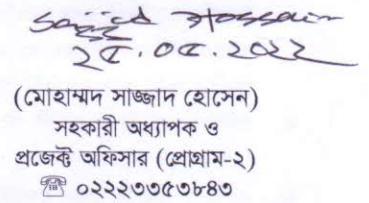 Sajjad Hossain
২৫.০৫.২০২২
(মোহাম্মদ সাজ্জাদ হোসেন)
সহকারী অধ্যাপক ও
প্রজেক্ট অফিসার (প্রোগ্রাম-২)
☎ ০২২২৩৩৫৩৮৪৩